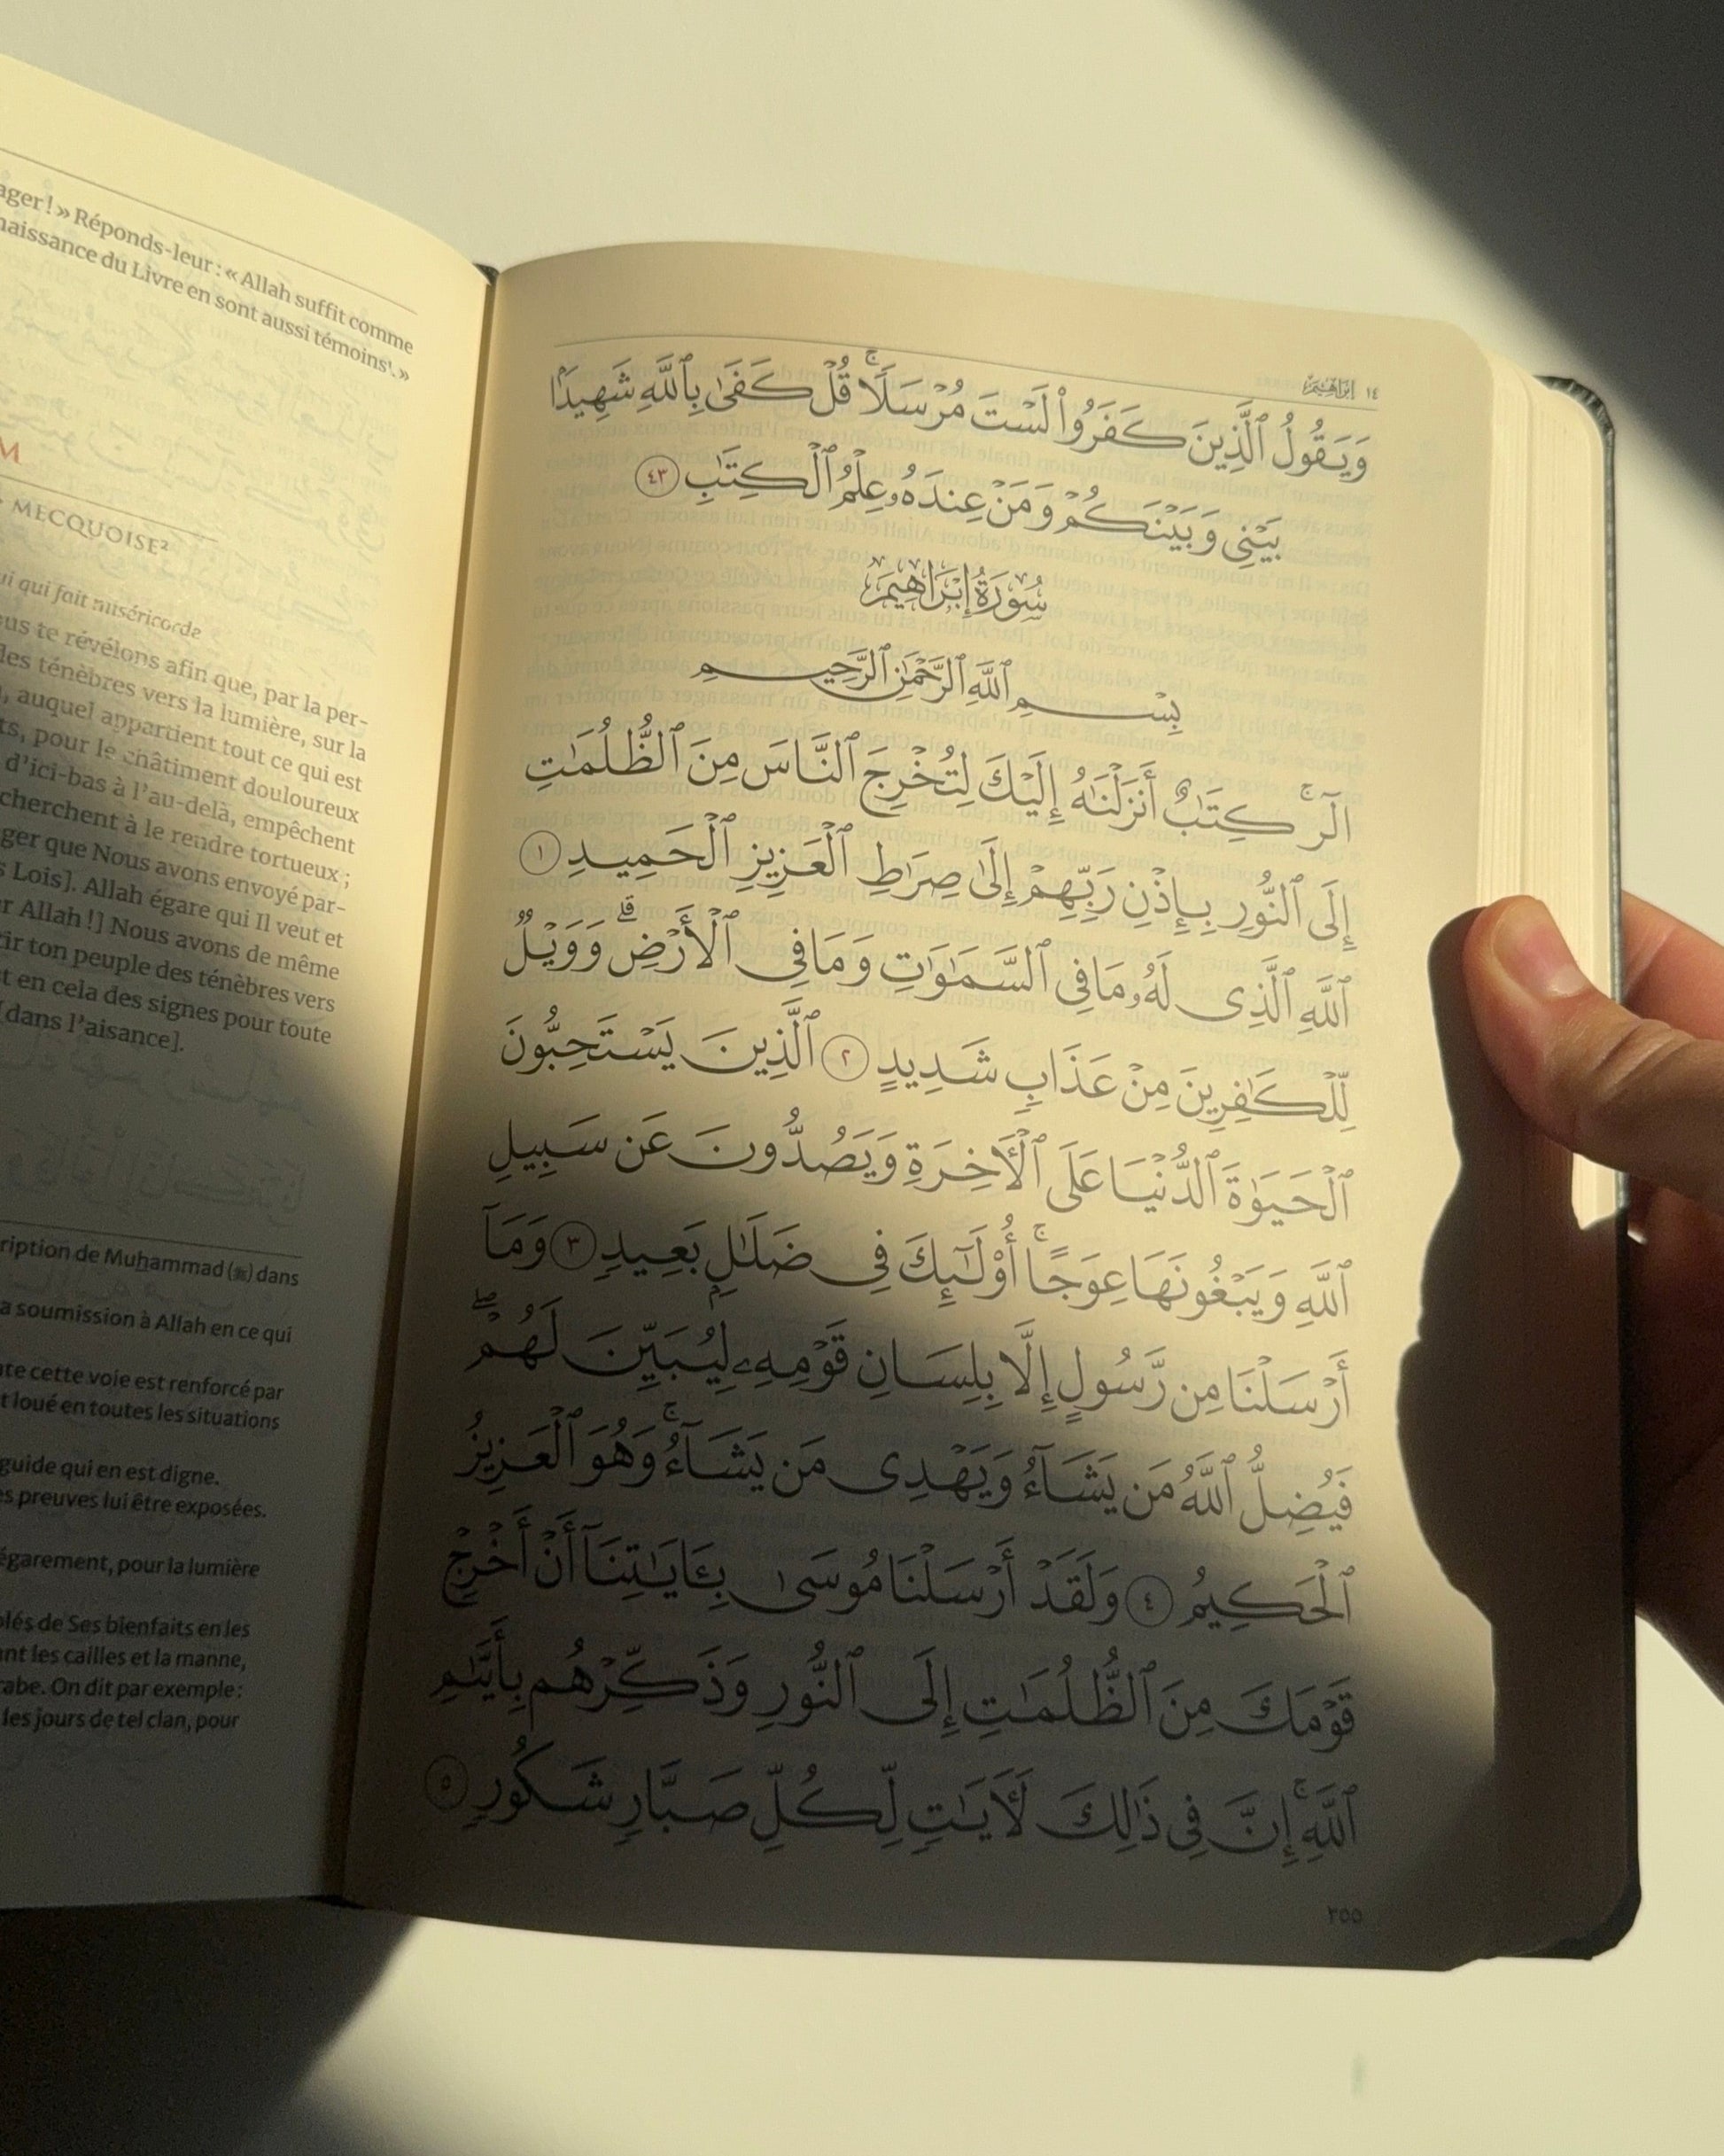 ager ! » Réponds-leur : « Allah suffit comme
naissance du Livre en sont aussi témoins¹. »
M
MECQUOISE²
ui qui fait miséricorde
ous te révélons afin que, par la per-
des ténèbres vers la lumière, sur la
, auquel appartient tout ce qui est
ts, pour le châtiment douloureux
d’ici-bas à l’au-delà, empêchent
cherchent à le rendre tortueux ;
ger que Nous avons envoyé par-
s Lois]. Allah égare qui Il veut et
r Allah !] Nous avons de même
tir ton peuple des ténèbres vers
t en cela des signes pour toute
[dans l’aisance].
cription de Muḥammad (ﷺ) dans
a soumission à Allah en ce qui
te cette voie est renforcé par
t loué en toutes les situations
guide qui en est digne.
s preuves lui être exposées.
égarement, pour la lumière
lés de Ses bienfaits en les
nt les cailles et la manne,
rabe. On dit par exemple :
les jours de tel clan, pour
١٤ إبراهيم
وَيَقُولُ ٱلَّذِينَ كَفَرُوا۟ لَسْتَ مُرْسَلًا ۚ قُلْ كَفَىٰ بِٱللَّهِ شَهِيدًۢا
بَيْنِى وَبَيْنَكُمْ وَمَنْ عِندَهُۥ عِلْمُ ٱلْكِتَـٰبِ ٤٣
سُورَةُ إِبْرَاهِيمَ
بِسْمِ ٱللَّهِ ٱلرَّحْمَـٰنِ ٱلرَّحِيمِ
الٓر ۚ كِتَـٰبٌ أَنزَلْنَـٰهُ إِلَيْكَ لِتُخْرِجَ ٱلنَّاسَ مِنَ ٱلظُّلُمَـٰتِ
إِلَى ٱلنُّورِ بِإِذْنِ رَبِّهِمْ إِلَىٰ صِرَٰطِ ٱلْعَزِيزِ ٱلْحَمِيدِ ١
ٱللَّهِ ٱلَّذِى لَهُۥ مَا فِى ٱلسَّمَـٰوَٰتِ وَمَا فِى ٱلْأَرْضِ ۗ وَوَيْلٌ
لِّلْكَـٰفِرِينَ مِنْ عَذَابٍ شَدِيدٍ ٢ ٱلَّذِينَ يَسْتَحِبُّونَ
ٱلْحَيَوٰةَ ٱلدُّنْيَا عَلَى ٱلْـَٔاخِرَةِ وَيَصُدُّونَ عَن سَبِيلِ
ٱللَّهِ وَيَبْغُونَهَا عِوَجًا ۚ أُو۟لَـٰٓئِكَ فِى ضَلَـٰلٍۭ بَعِيدٍ ٣ وَمَآ
أَرْسَلْنَا مِن رَّسُولٍ إِلَّا بِلِسَانِ قَوْمِهِۦ لِيُبَيِّنَ لَهُمْ ۖ
فَيُضِلُّ ٱللَّهُ مَن يَشَآءُ وَيَهْدِى مَن يَشَآءُ ۚ وَهُوَ ٱلْعَزِيزُ
ٱلْحَكِيمُ ٤ وَلَقَدْ أَرْسَلْنَا مُوسَىٰ بِـَٔايَـٰتِنَآ أَنْ أَخْرِجْ
قَوْمَكَ مِنَ ٱلظُّلُمَـٰتِ إِلَى ٱلنُّورِ وَذَكِّرْهُم بِأَيَّىٰمِ
ٱللَّهِ ۚ إِنَّ فِى ذَٰلِكَ لَـَٔايَـٰتٍ لِّكُلِّ صَبَّارٍ شَكُورٍ ٥
٢٥٥